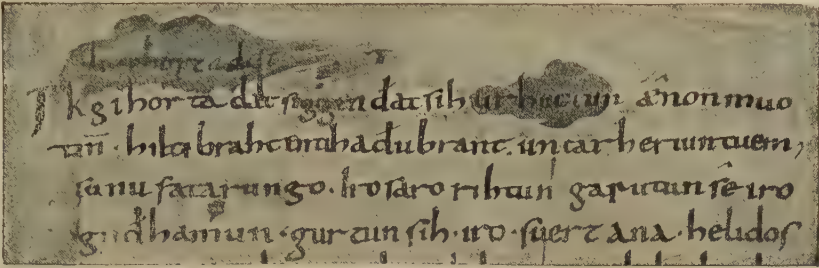 Ik gihorta đat seggen đat sih urhettun ænon muo
tin · hiltibraht enti hađubrant · untar heriun tuem,
sunu fatarungo · iro saro rihtun garutun sê iro
gudhamun · gurtun sih · iro · suert ana · helidos